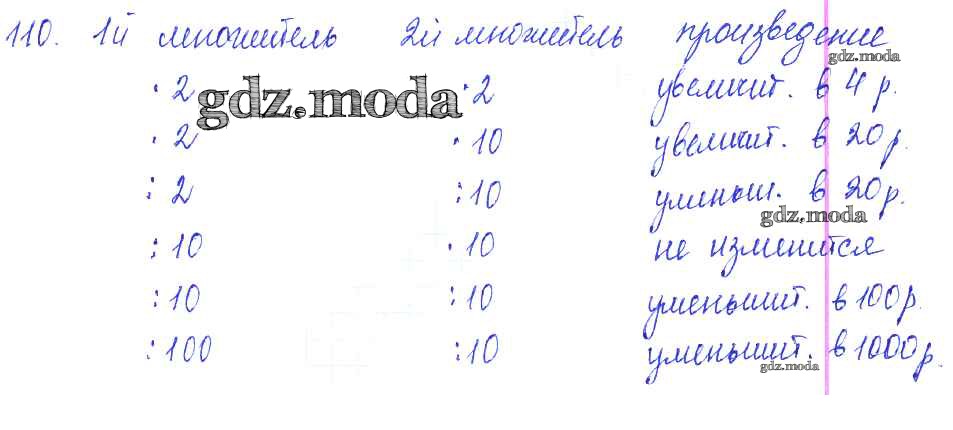 110. 1й множитель 2й множитель произведение
gdz.moda
· 2 · 2 увеличит. в 4 р.
gdz.moda
· 2 · 10 увеличит. в 20 р.
: 2 : 10 уменьш. в 20 р.
gdz.moda
: 10 · 10 не изменится
: 10 : 10 уменьшит. в 100 р.
: 100 : 10 уменьшит. в 1000 р.
gdz.moda